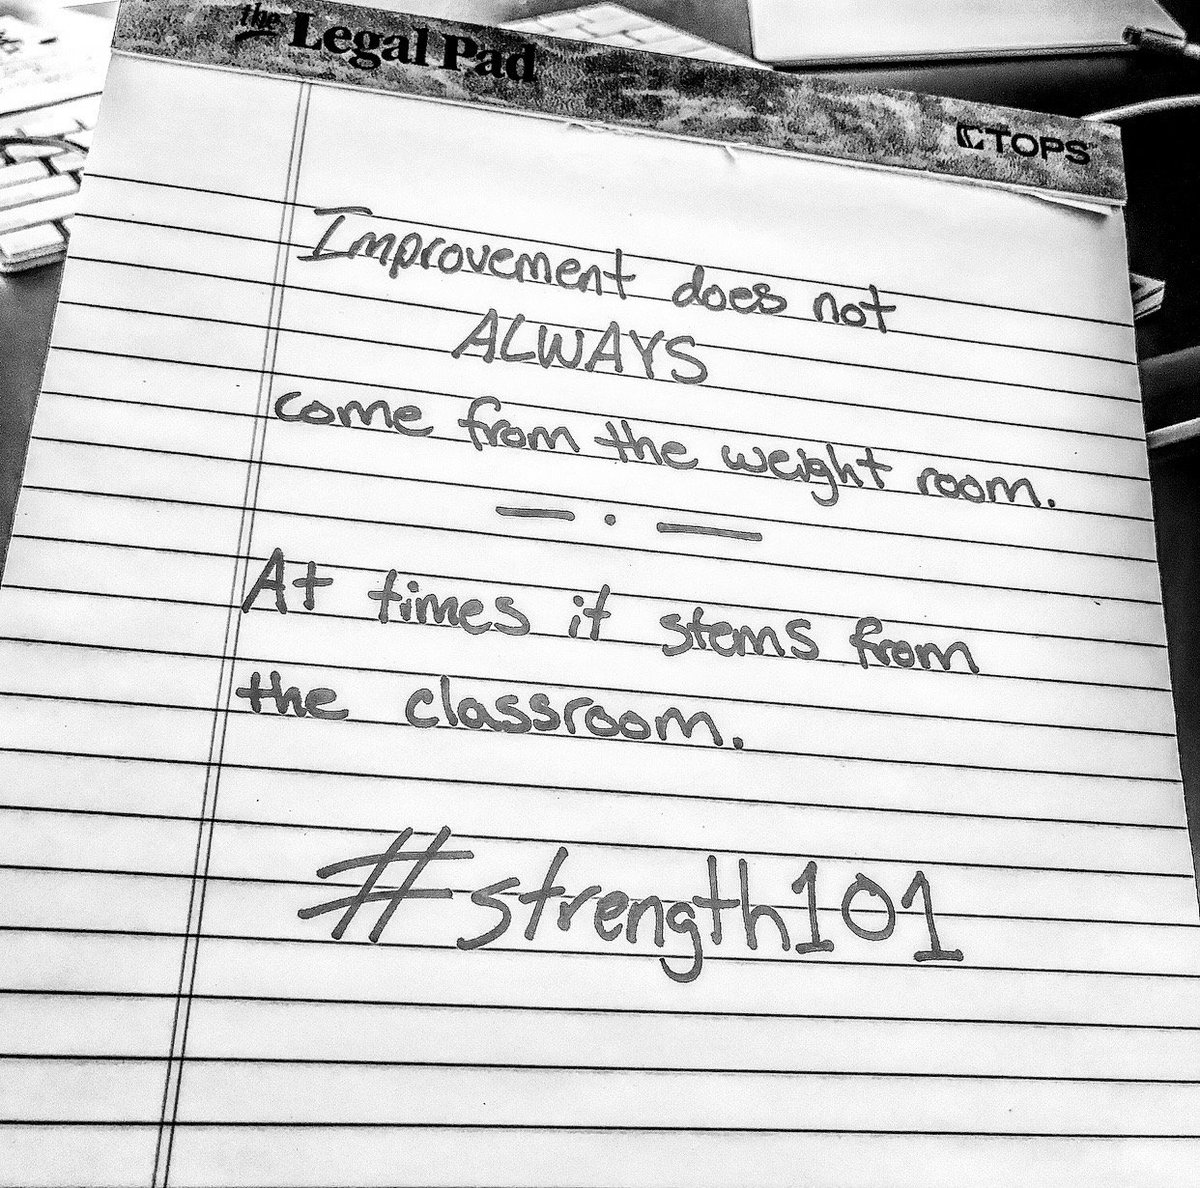 the Legal Pad
TOPS
Improvement does not
ALWAYS
come from the weight room.
— . —
At times it stems from
the classroom.
#strength101